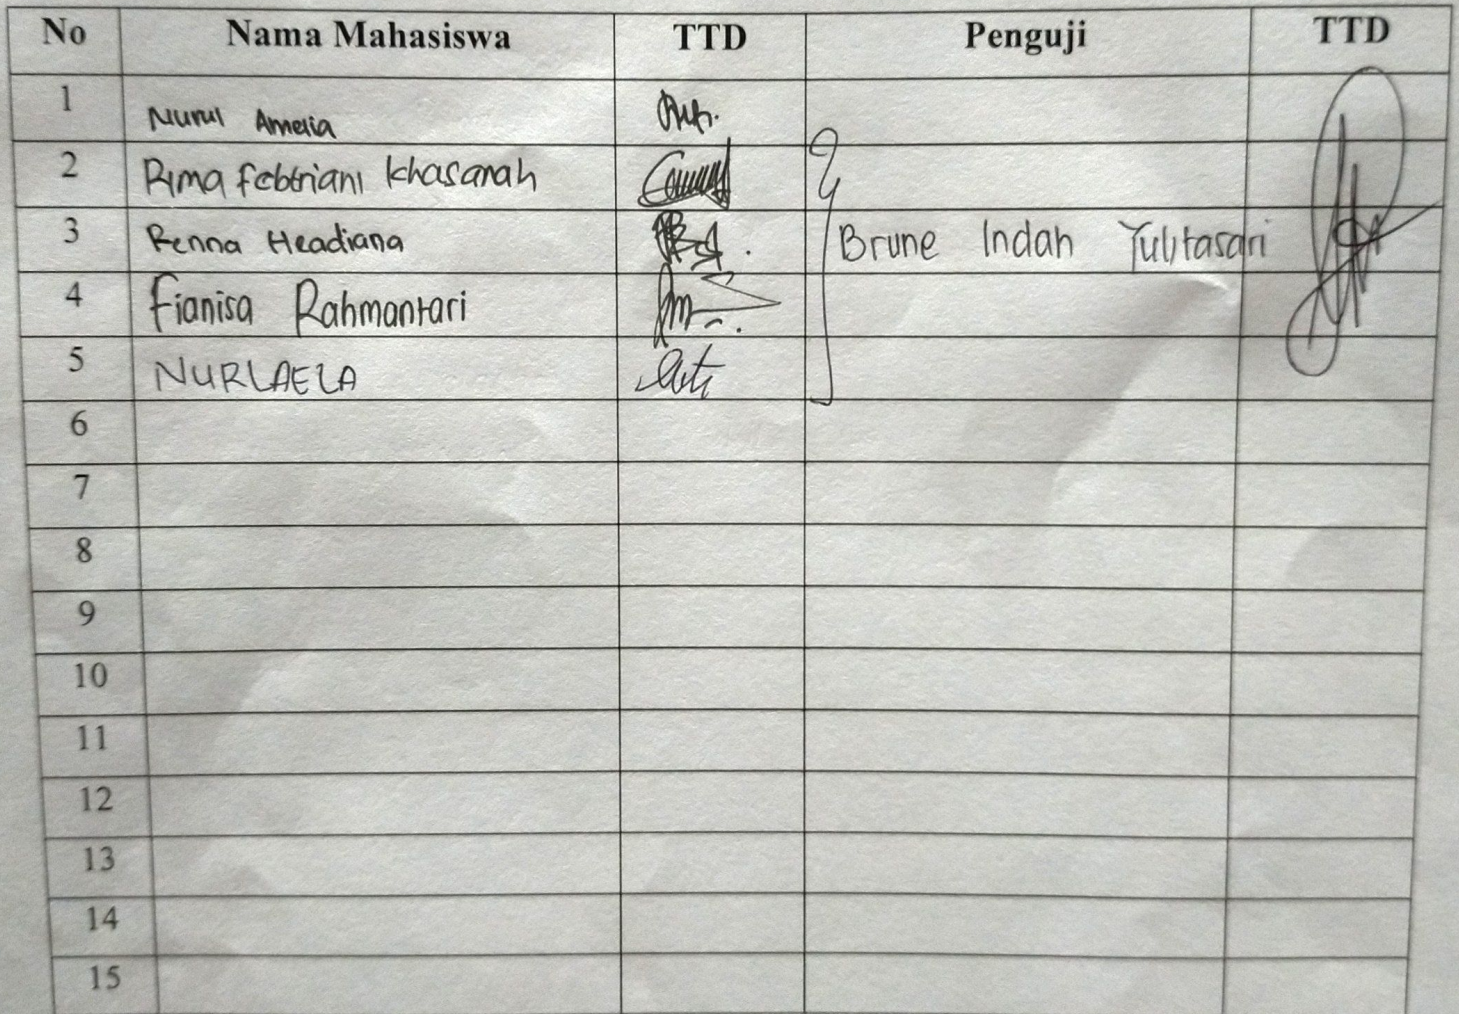 No Nama Mahasiswa TTD Penguji TTD
1 Nurul Amelia
2 Rima Febtriani Khasanah
3 Renna Headiana Brune Indah Yulitasari
4 Fianisa Rahmantari
5 NURLAELA
6
7
8
9
10
11
12
13
14
15